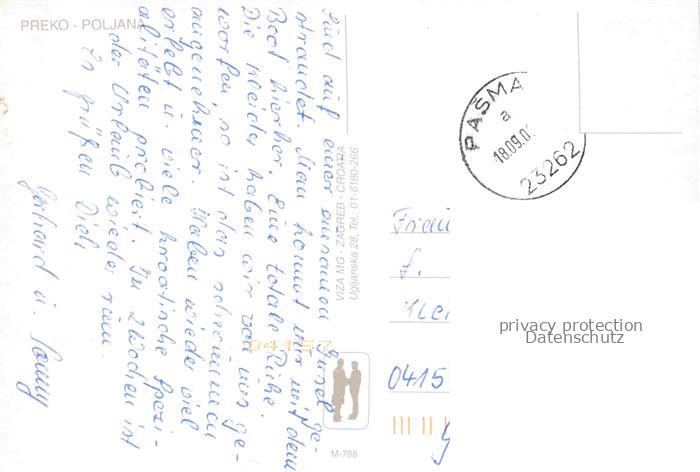 PREKO - POLJANA
Sind auf einer einsamen Insel ge-
strandet. Man kommt nur mit dem
Boot hierher. Eine totale Ruhe.
Die Kleider haben wir von uns ge-
worfen, so ist das schwimmen
angenehmer. Haben wieder viel
erlebt u. viele kroatische Spezi-
alitäten probiert. In 2 Wochen ist
der Urlaub wieder rum.
Es grüßen Dich
Gerhard u.
VIZA MG - ZAGREB - CROATIA
Ugljanska 28, Tel.: 01-6180-266
04157
M-788
PAŠMA
a
18.09.0
23262
Frau
S.
Klei
0415
privacy protection
Datenschutz